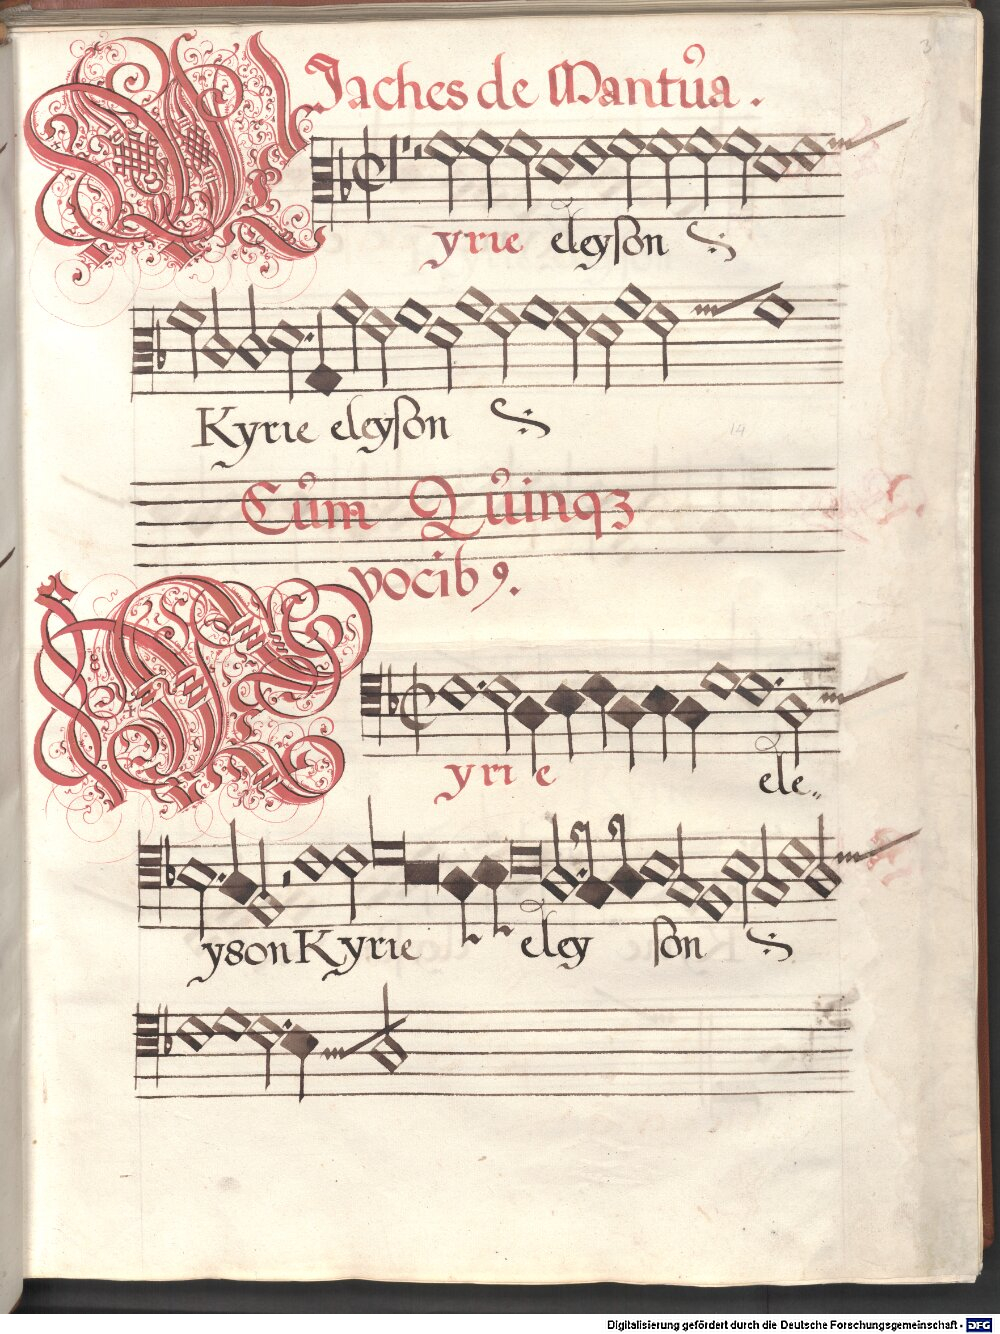 Jaches de Mantua.
Kyrie eleyson
Kyrie eleyson
Cum Quinqꝫ
vocibꝰ.
Kyrie ele„
yson Kyrie eley son
3
14
Digitalisierung gefördert durch die Deutsche Forschungsgemeinschaft - DFG